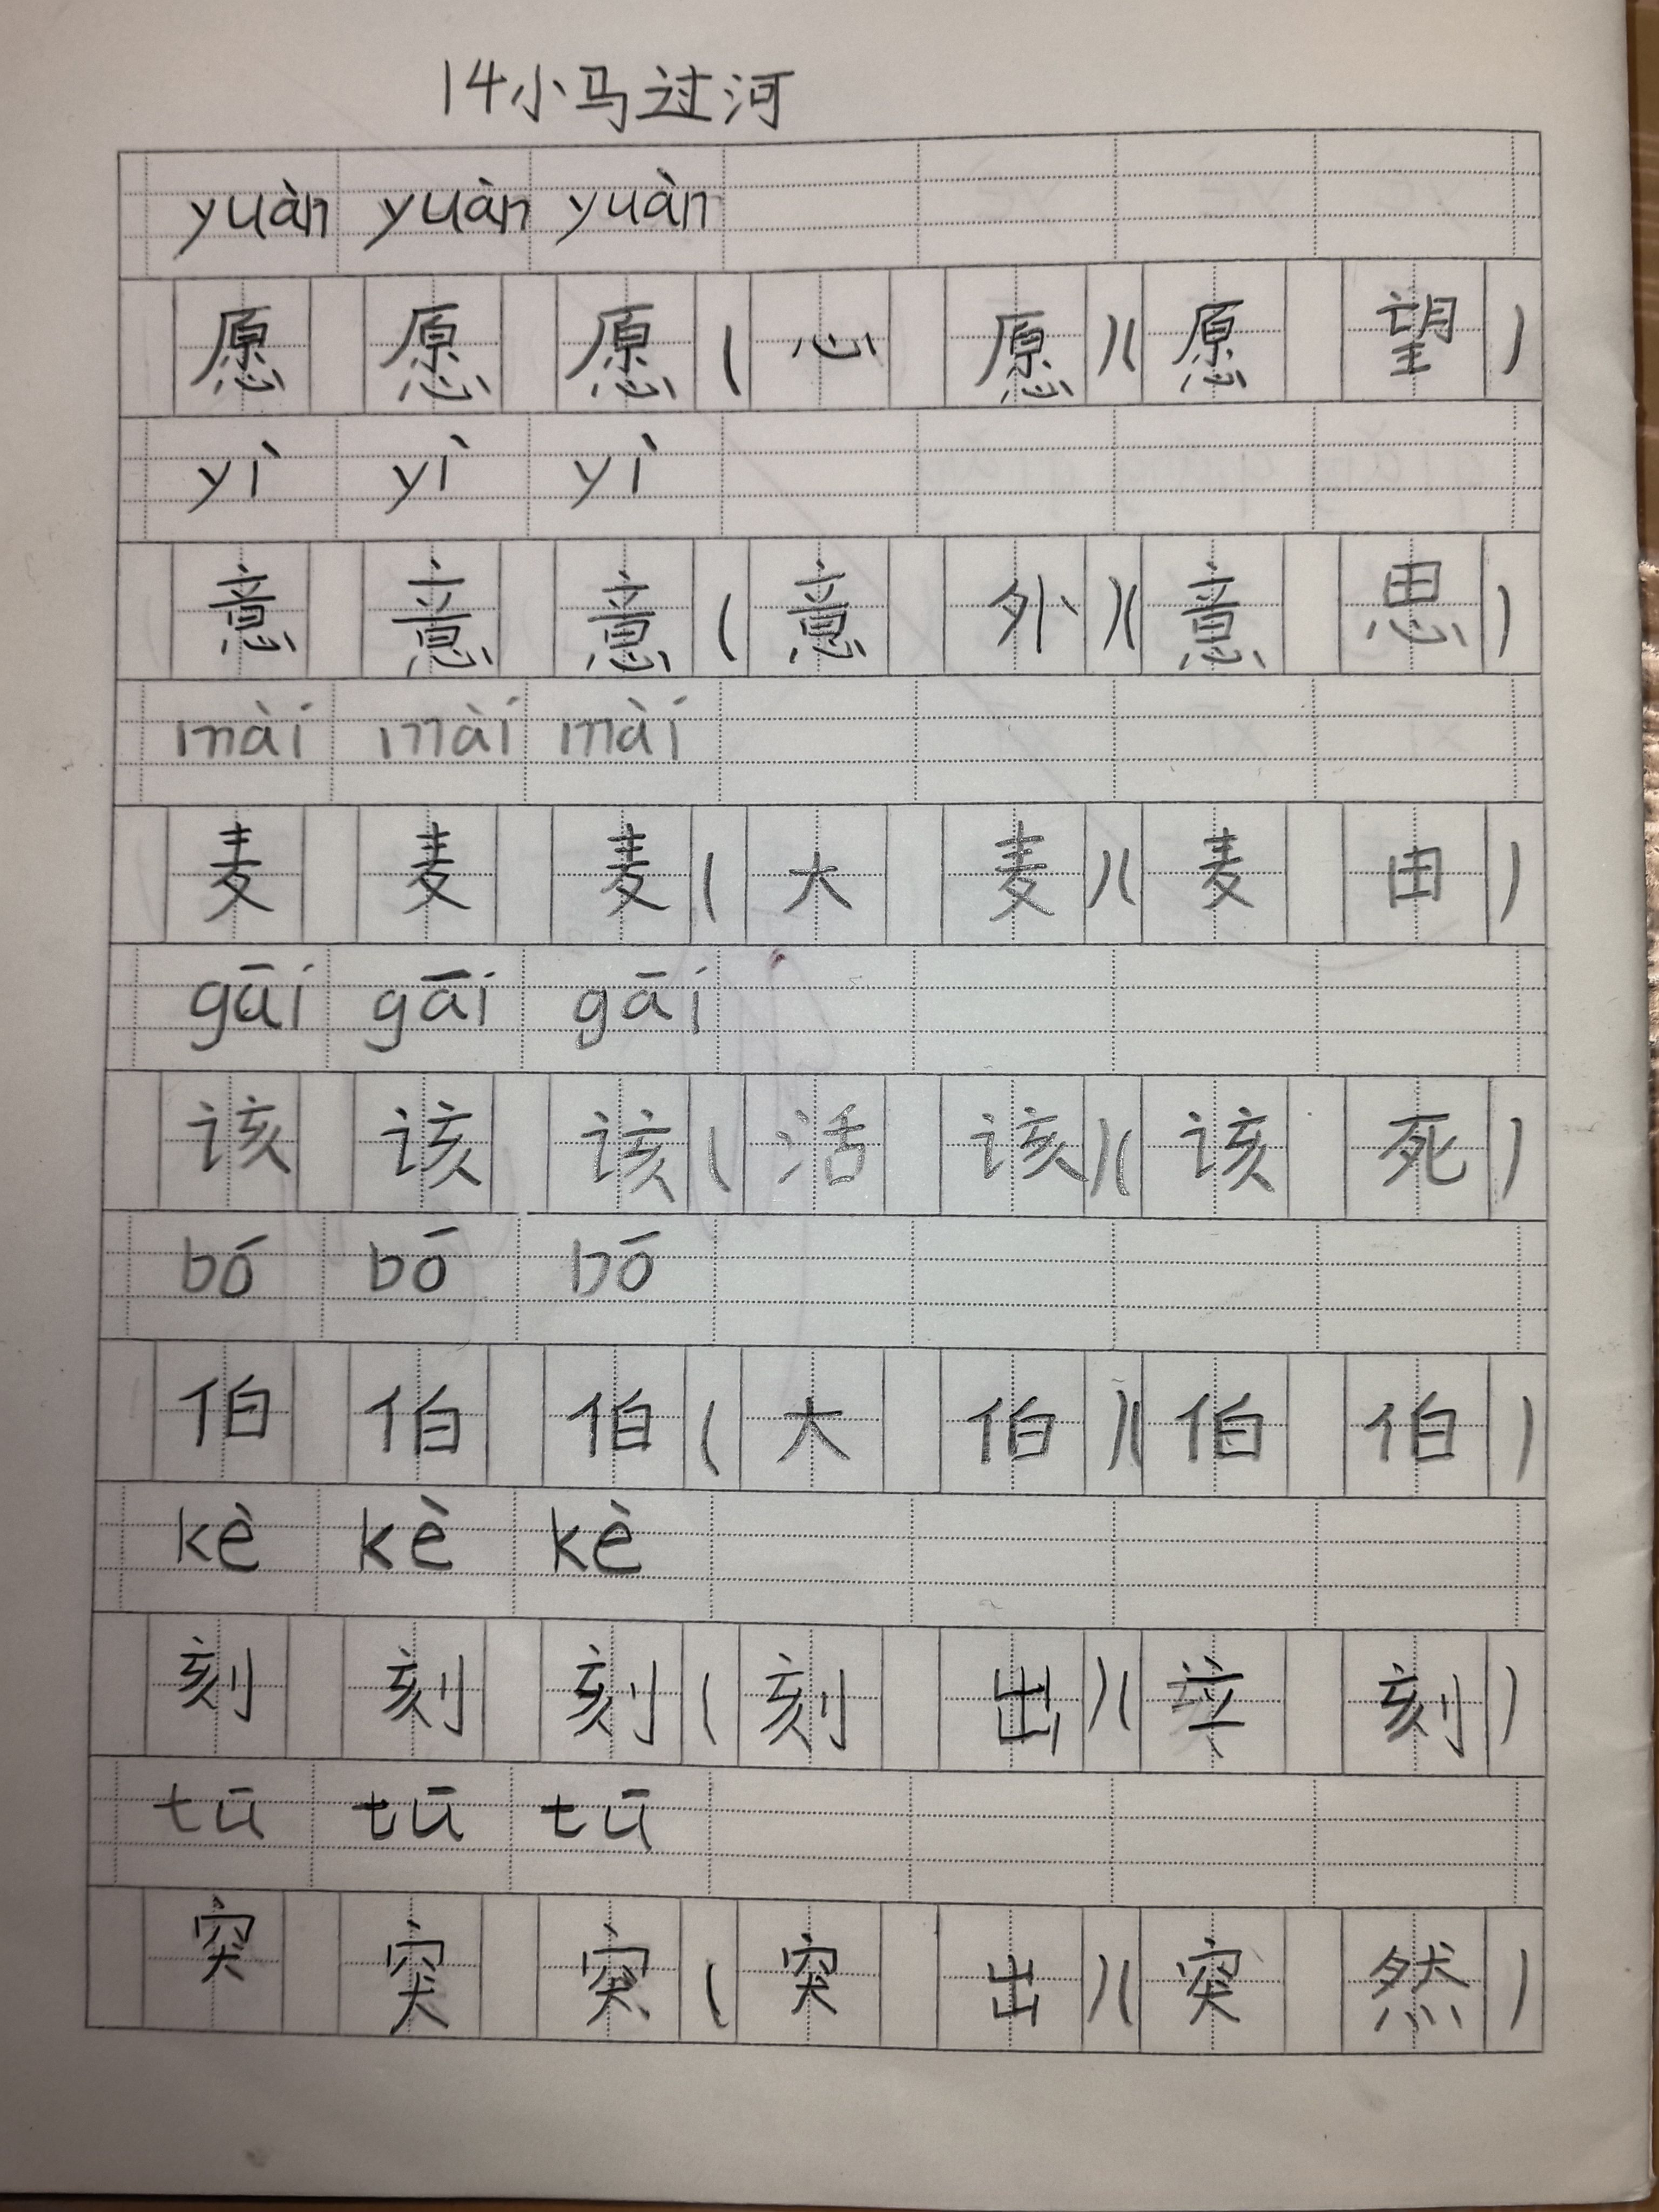 14小马过河
yuàn yuàn yuàn
愿 愿 愿 (心 愿)(愿 望)
yì yì yì
意 意 意 (意 外)(意 思)
mài mài mài
麦 麦 麦 (大 麦)(麦 田)
gāi gāi gāi
该 该 该 (活 该)(该 死)
bó bó bó
伯 伯 伯 (大 伯)(伯 伯)
kè kè kè
刻 刻 刻 (刻 出)(立 刻)
tū tū tū
突 突 突 (突 出)(突 然)